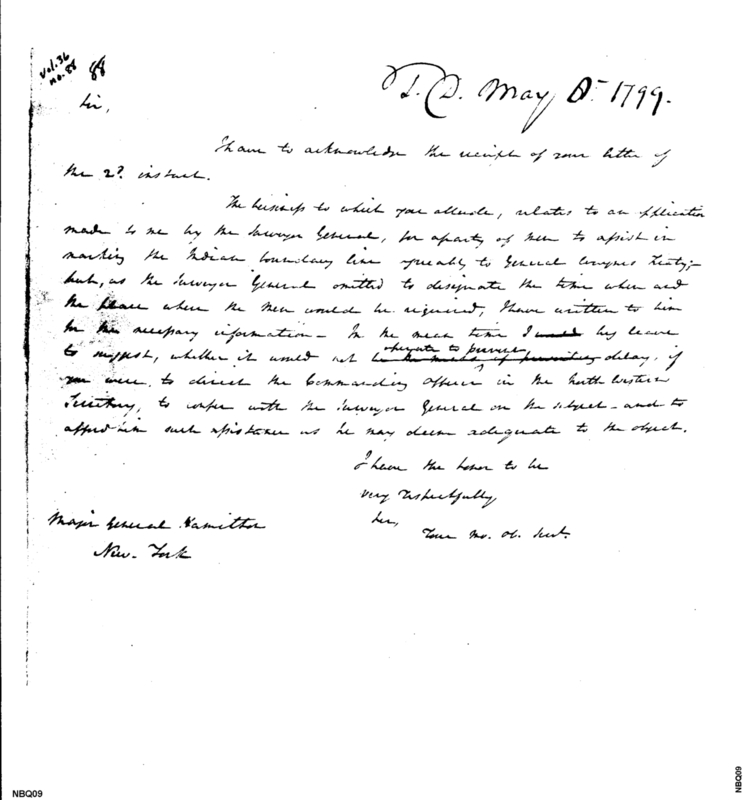 Vol. 36
no. 88
88
T.D. May 8th 1799.
Sir,
I have to acknowledge the receipt of your letter of
the 2d. instant.
The business to which you allude, relates to an application
made to me by the Surveyor General, for a party of Men to assist in
marking the Indian boundary line agreeably to General Waynes Treaty;
but, as the Surveyor General omitted to designate the time when and
the place where the Men would be required, I have written to him
for the necessary information— In the mean time I would beg leave
to suggest, whether it would not operate to prevent delay, if
you were to direct the Commanding Officer in the North Western
Territory, to confer with the Surveyor General on the subject—and to
afford him such assistance as he may deem adequate to the object.
I have the honor to be
very respectfully
Sir,
Your mo. ob. Servt.
Major General Hamilton
New-York
NBQ09
NBQ09